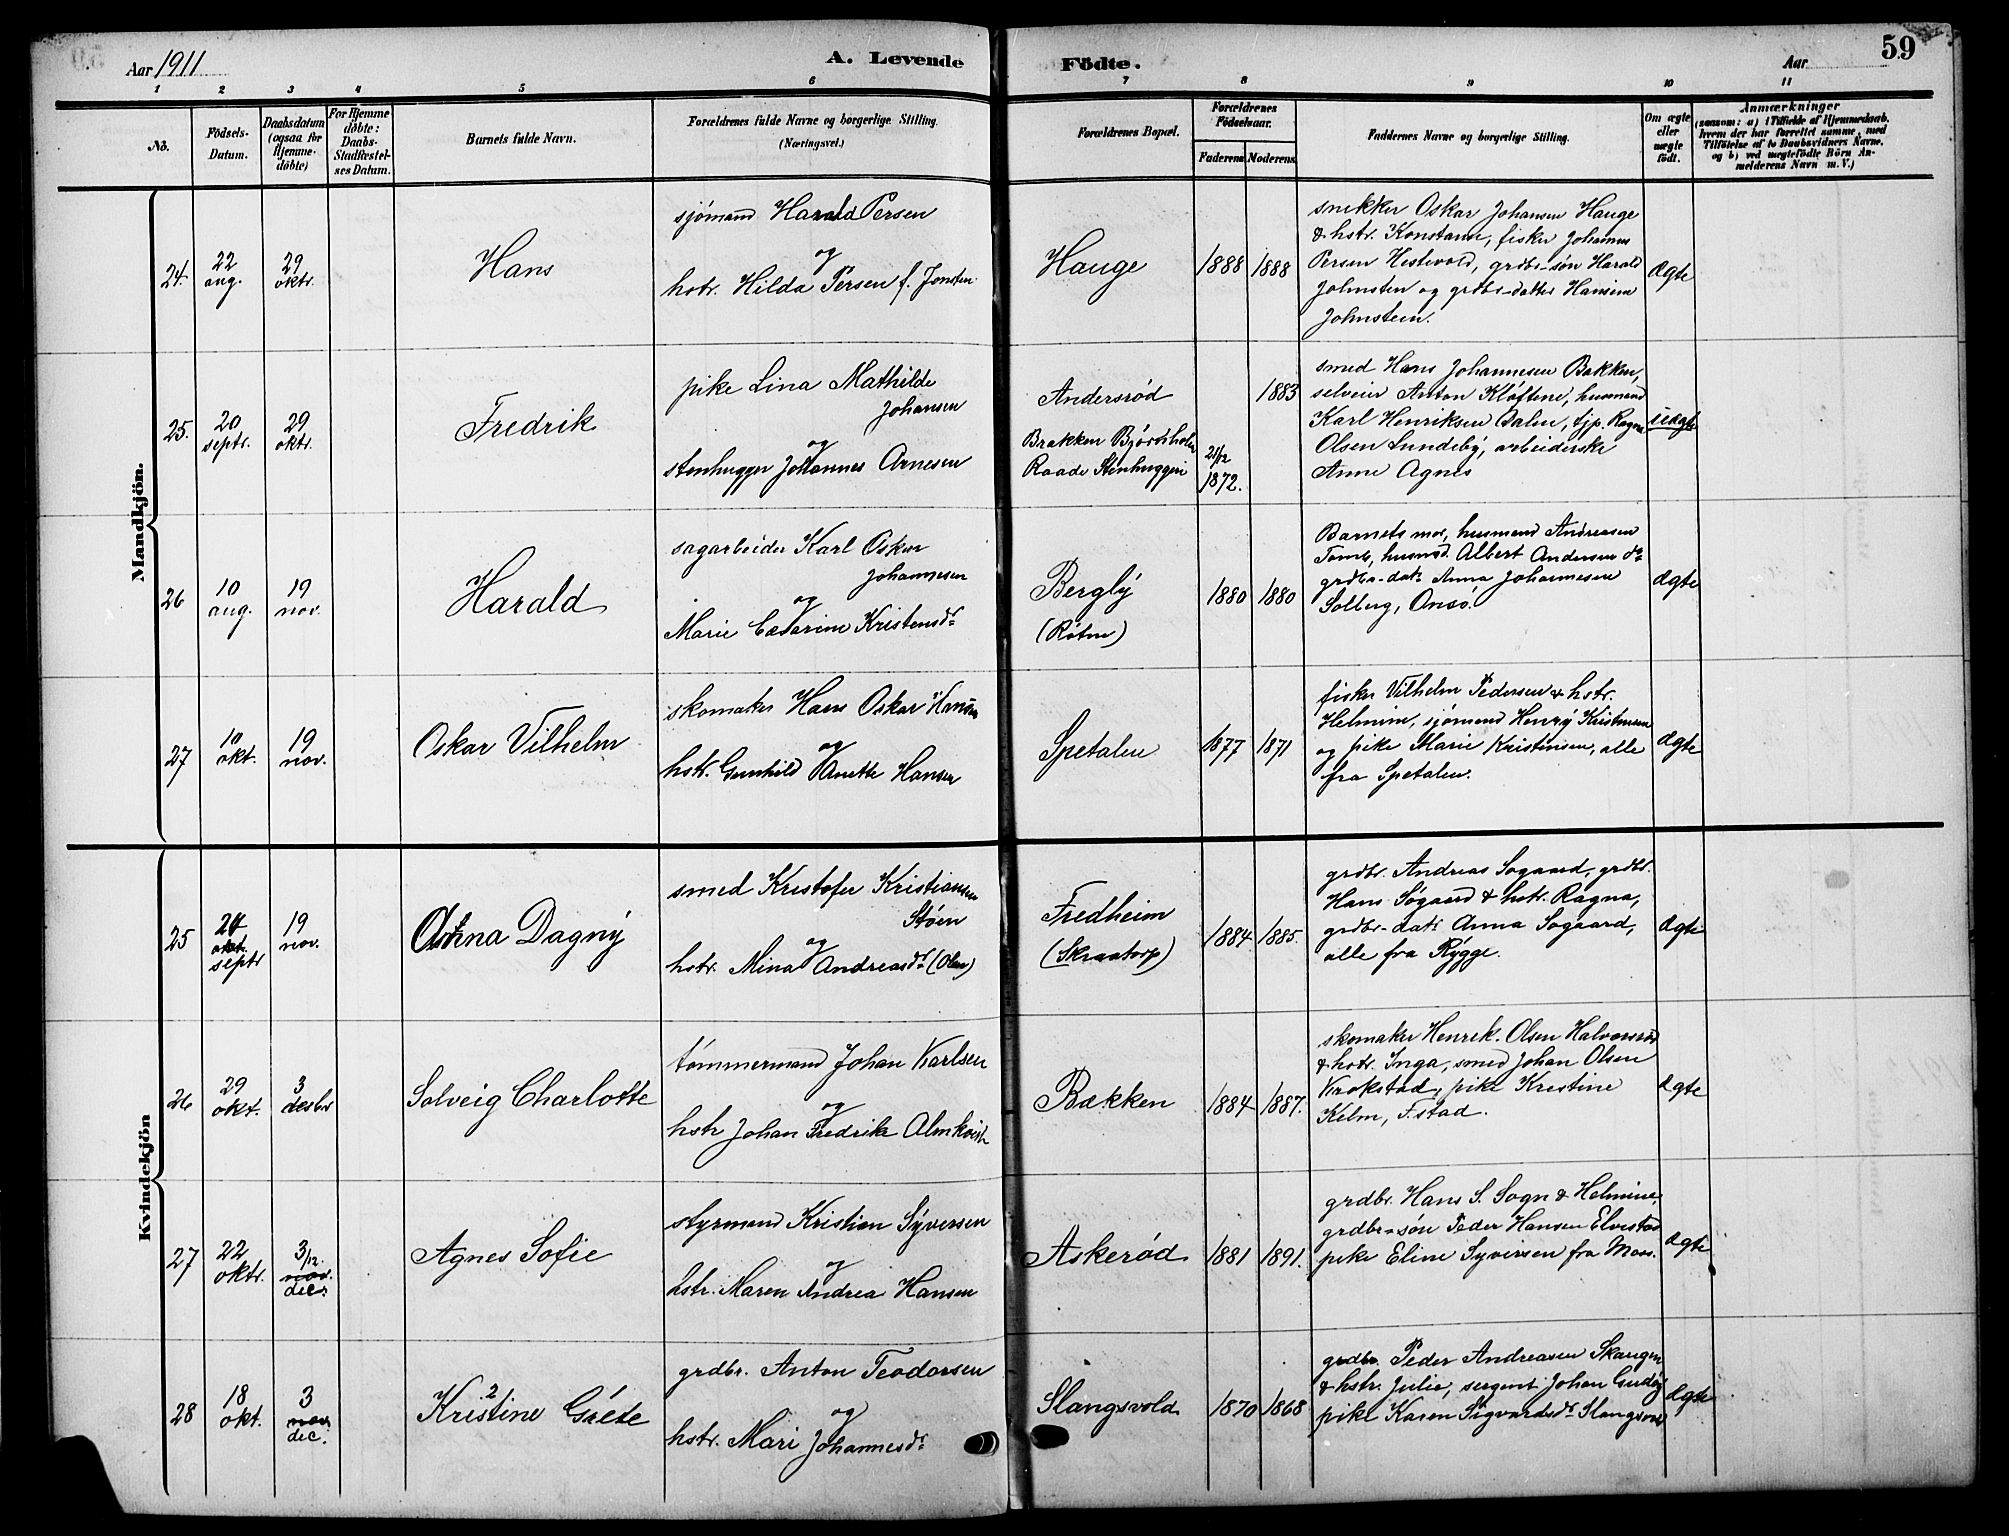 Aar 1911
A. Levende
Födte.
Aar
59
1 2 3 4 5 6 7 8 9 10 11
No.
Födsels-
Datum.
Daabsdatum
(ogsaa for
Hjemme-
døbte)
For Hjemme
døbte:
Daabs-
Stadfæstel-
ses Datum.
Barnets fulde Navn.
Forældrenes fulde Navne og borgerlige Stilling.
(Næringsvei.)
Forældrenes Bopæl.
Forældrenes
Födselsaar.
Faderens
Moderens
Faddernes Navne og borgerlige Stilling.
Om ægte
eller
uægte
født.
Anmærkninger
(saasom: a) i Tilfælde af Hjemmedaab,
hvem der har forrettet samme, med
Tilføielse af to Daabsvidners Navne,
og b) ved uægtefödte Börn An-
melderens Navn m. V.)
Mandkjön.
24.
22
aug.
29
oktr.
Hans
sjömand Harald Persen
og
hstr. Hilda Persen f. Jonsten
Hauge
1888
1888
snekker Oskar Johansen Hauge
& hstr. Konstanse, fisker Johannes
Persen Hestevold, grdbr-søn Harald
Johnsten og grdbr-datter Hansine
Johnstein.
Ægte
25.
20
septr.
29
oktr.
Fredrik
pike Lina Mathilde
Johansen
og
stenhugger Johannes Arnesen
Andersrød
Brakken Bjørnsholm
Raade Stenhuggeri
21/12
1872.
1883
smed Hans Johannesen Bakken,
selveier Anton Kløftene, husmand
Karl Henriksen Dalen, tjp. Ragna
Olsen Lundeby, arbeiderske
Anne Agnes
uægte
26
10
aug.
19
nov.
Harald
sagarbeider Karl Oskar
Johannesen
og
Marie Catarine Kristensdr
Bergly
(Røtne)
1880
1880
Barnets mor, husmand Andreasen
Tomb, husmd. Albert Andersen do
grdbr-dat: Anna Johannesen
Solberg, Onsø.
ægte
27
10
okt.
19
nov.
Oskar Vilhelm
skomaker Hans Oskar Hansen
og
hstr. Gunhild Anette Hansen
Spetalen
1877
1871
fisker Vilhelm Pedersen & hstr.
Helmine, sjömand Henry Kristensen
og pike Marie Kristensen, alle
fra Spetalen.
ægte
Kvindekjön
25
24
okt.
septr
19
nov.
Anna Dagny
smed Kristofer Kristiansen
Støen
og
hstr. Mina Andreasdr (Olsen)
Fredheim
(Skraatorp)
1884
1885.
grdbr. Andreas Sogaard, grdbr.
Hans Sögaard & hstr. Ragna,
grdbr-dat: Anna Sogaard,
alle fra Rygge.
Ægte
26
29
okt.
3
desbr
Solveig Charlotte
tømmermand Johan Karlsen
og
hstr Johan Fredrik Almkvist
Bakken
1884
1887.
skomaker Henrik Olsen Halvorsrød
& hstr. Inga, smed Johan Olsen
Krokstad, pike Kristine
Kelm, F.stad.
Ægte
27
22
oktr.
3/12.
nov.
decr
Agnes Sofie
styrmand Kristian Syversen
og
hstr. Maren Andrea Hansen
Askerød
1881
1891.
grdbr. Hans S. Sogn & Helmine
grdbr-søn Peder Hansen Elvestad
pike Eline Syversen fra Moss.
Ægte
28
18
okt.
3
nov
dec.
2
Kristine Gréte
grdbr. Anton Teodorsen
og
hstr. Mari Johannesdr
Slangsvold
1870
1868
grdbr. Peder Andreasen Skaugen
& hstr. Julie, sergent Johan Gudøy
pike Karen Sigvardsdr Slangsvold
Ægte